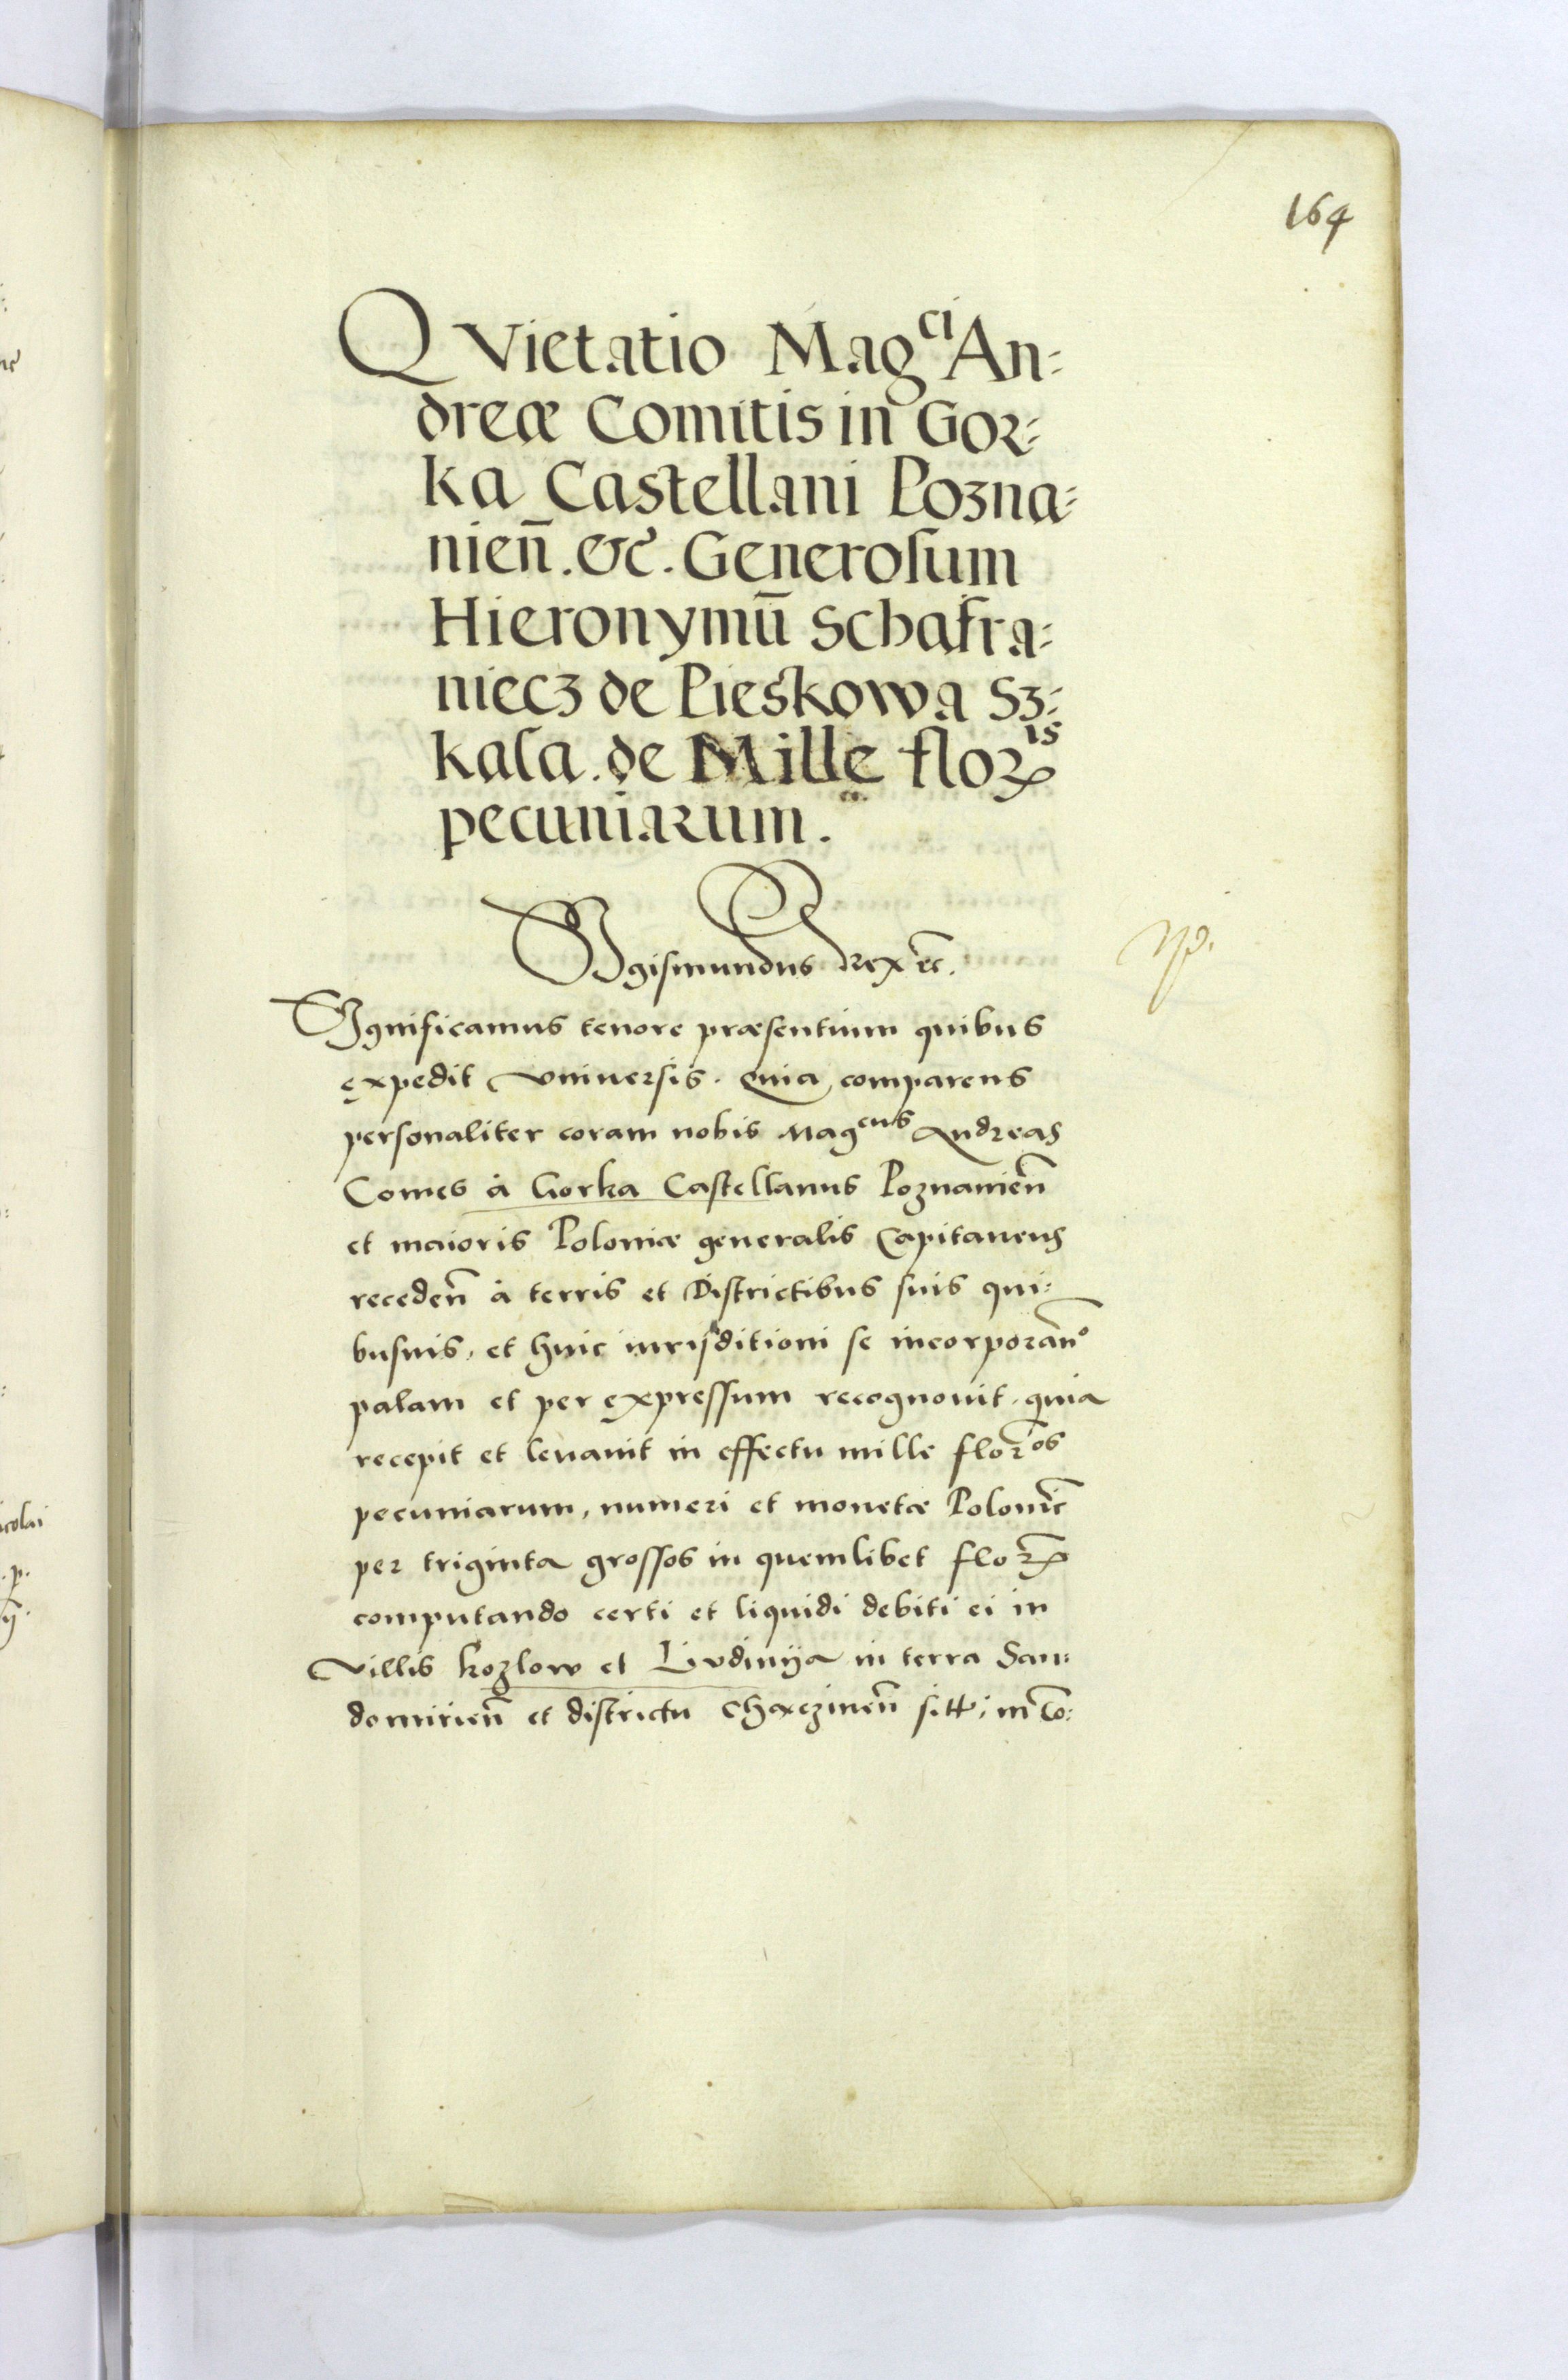 164
QVietatio Mag^ci An=
dreæ Comitis in Gor=
ka Castellani Pozna=
nieñ. &c. Generosum
Hieronymū Schafra=
niecz de Pieskowa Sz=
kala. de Mille flor^is
pecuniarum.
Sigismundus Rex ec̃.
Significamus tenore præsentium quibus
expedit vniuersis. Quia comparens
personaliter coram nobis Mag^cus Andreas
Comes à Gorka Castellanus Poznanieñ
et maioris Poloniæ generalis Capitaneus
recedeñ à terris et Districtibus suis qui=
busuis, et huic iurisditioni se incorporañ
palam et per expressum recognouit. quia
recepit et leuauit in effectu mille flor^os
pecuniarum, numeri et monetæ Polonic̃
per triginta grossos in quemlibet flor̃
computando certi et liquidi debiti ei in
villis Kozlow et Livdinÿa in terra San=
domirieñ et districtu Chæczineñ sitt: in Co=
icolai